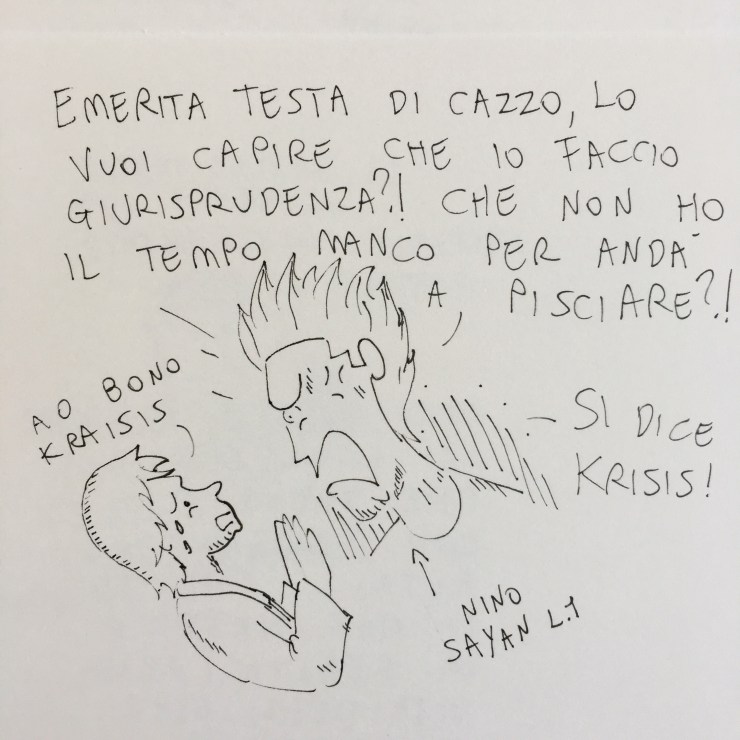 EMERITA TESTA DI CAZZO, LO
VUOI CAPIRE CHE IO FACCIO
GIURISPRUDENZA?! CHE NON HO
IL TEMPO MANCO PER ANDÀ
A PISCIARE?!
AO BONO
KRAISIS
- SI DICE
KRISIS!
NINO
SAYAN L.1